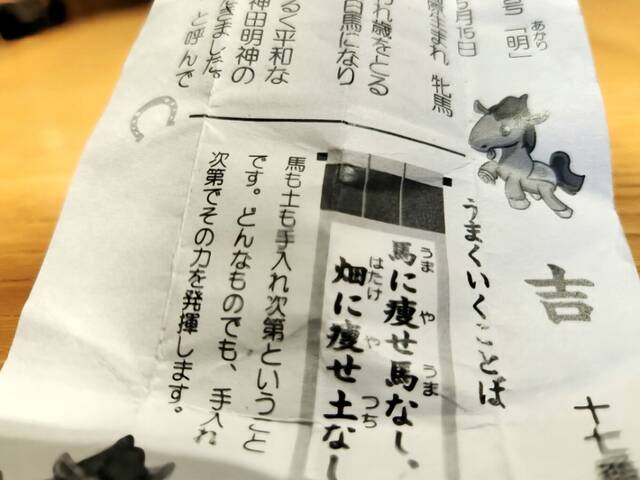 号「明」
あかり
5月15日
生まれ 牝馬
われ歳をとる
白馬になり
るく平和な
神田明神の
だきました
と呼んで
十七番
吉
うまくいくことば
馬に痩せ馬なし、
うま や うま
畑に痩せ土なし
はたけ や つち
馬も土も手入れ次第ということ
です。どんなものでも、手入れ
次第でその力を発揮します。